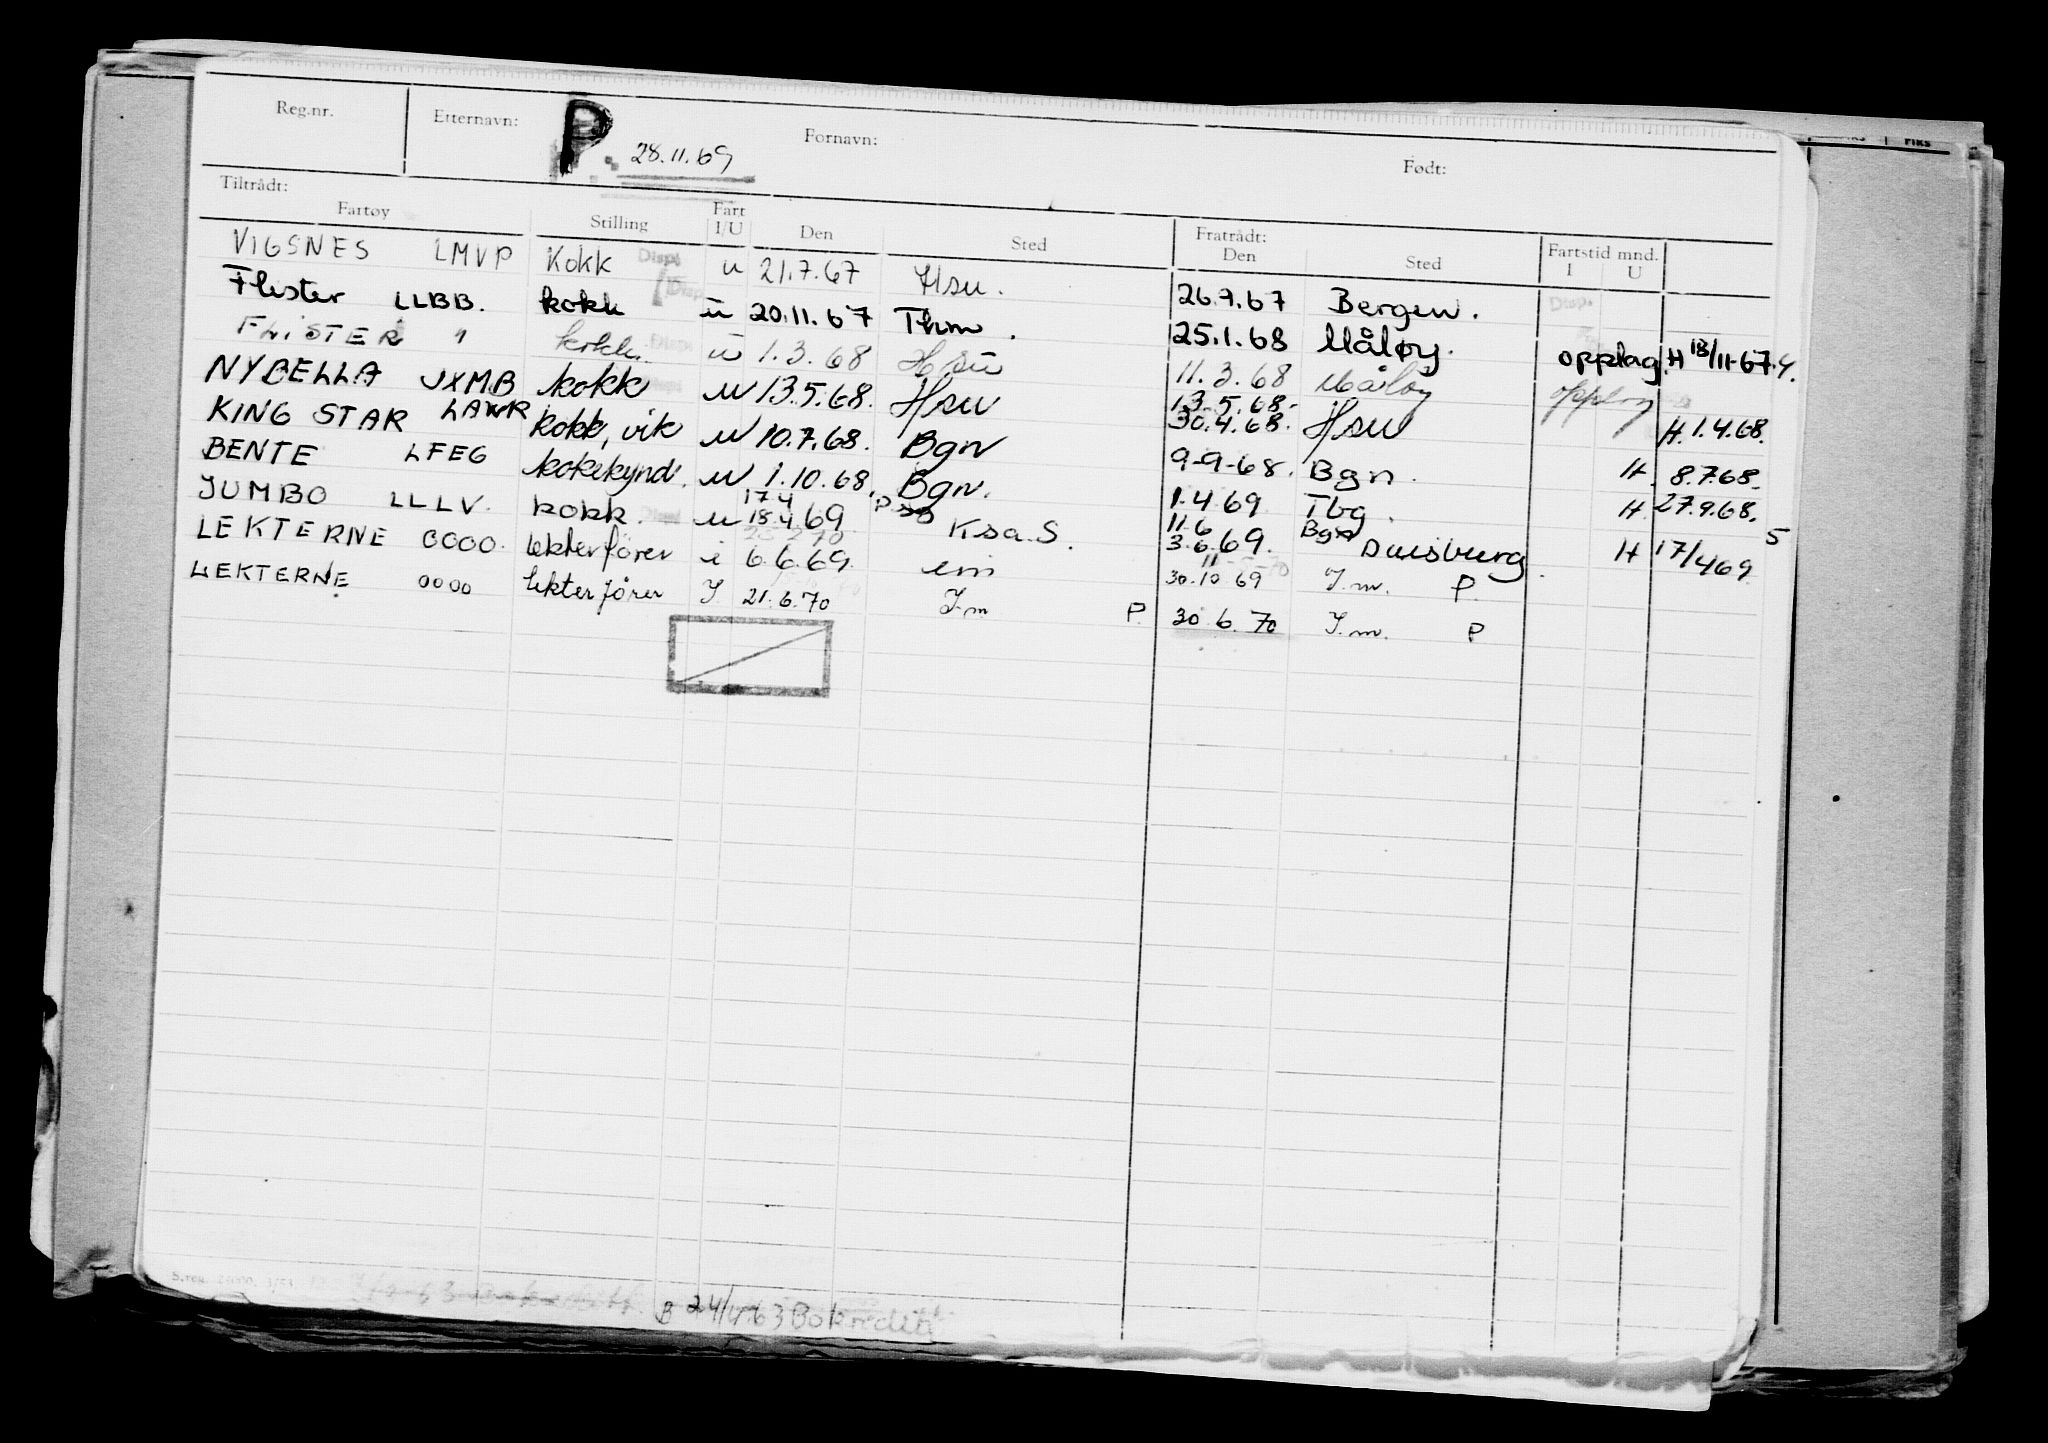 Reg.nr. Etternavn: P. 28.11.69 Fornavn: Født:
Tiltrådt: Fratrådt:
Fartøy Stilling Fart I/U Den Sted Den Sted Fartstid mnd. I U
VIGSNES LMVP Kokk u 21.7.67 Hsu. 26.9.67 Bergen.
Flister LLBB. kokk u 20.11.67 Thm. 25.1.68 Måløy. opplag. H 13/11-67.4.
FLISTER " kokk u 1.3.68 Hsu 11.3.68 Måløy opplag
NYBELLA JXMB kokk u 13.5.68. Hsu 13.5.68.- 30.4.68. Hsu H. 1.4.68.
KING STAR LAWR kokk, vik u 10.7.68. Bgn 9-9-68. Bgn. H. 8.7.68.
BENTE LFEG kokekynd. u 1.10.68. Bgn. 1.4.69 Tbg. H. 27.9.68.
JUMBO LLLV. kokk. u 17.4 18.4.69 P Ksa.S. 11.6 3.6.69. Bgn Duisburg. H 17/469 5
LEKTERNE 0000. lekterfører i 6.6.69. im 30.10 69 I.m. P.
LEKTERNE 0000 lekterfører I 21.6.70 I.m P. 30.6.70 I.m. P
S.reg. 3/53
B 24/ 63